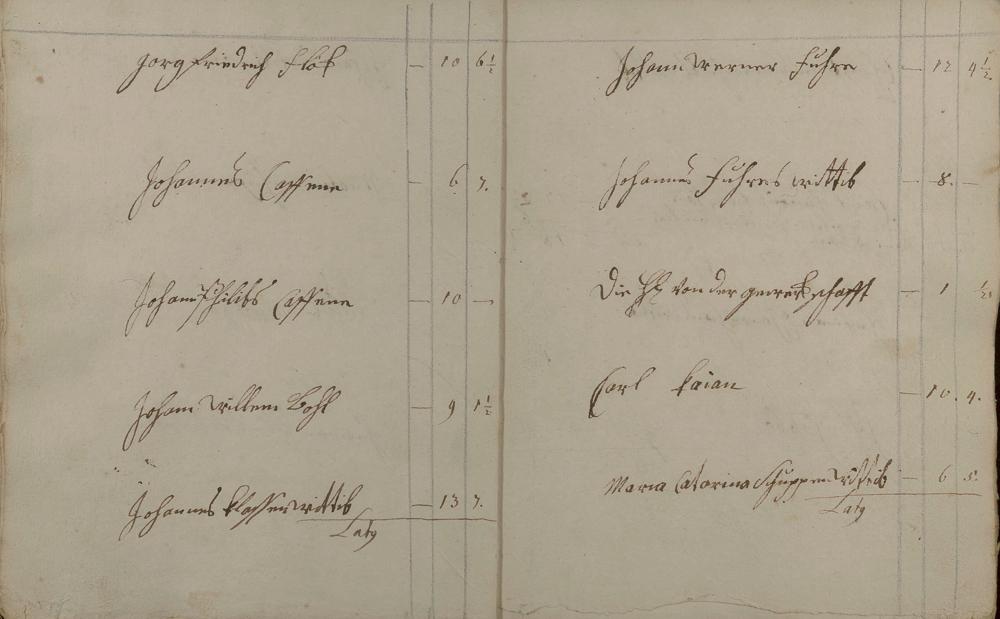 Jorg friedrich Flök — 10 6½
Johannes Caffene — 6 7.
Johan Philibs Caffene — 10 —
Johann Willem Bohl — 9 1½
Johannes Klassen wittib — 13 7.
Laty
Johann Werner Fuhre — 12 4½
Johannes Fuhres wittib — 8. —
Die von der gewerkschafft — 1 ½
Carl Kaian — 10. 4.
Maria Catarina Schuppen wittib — 6 5.
Laty